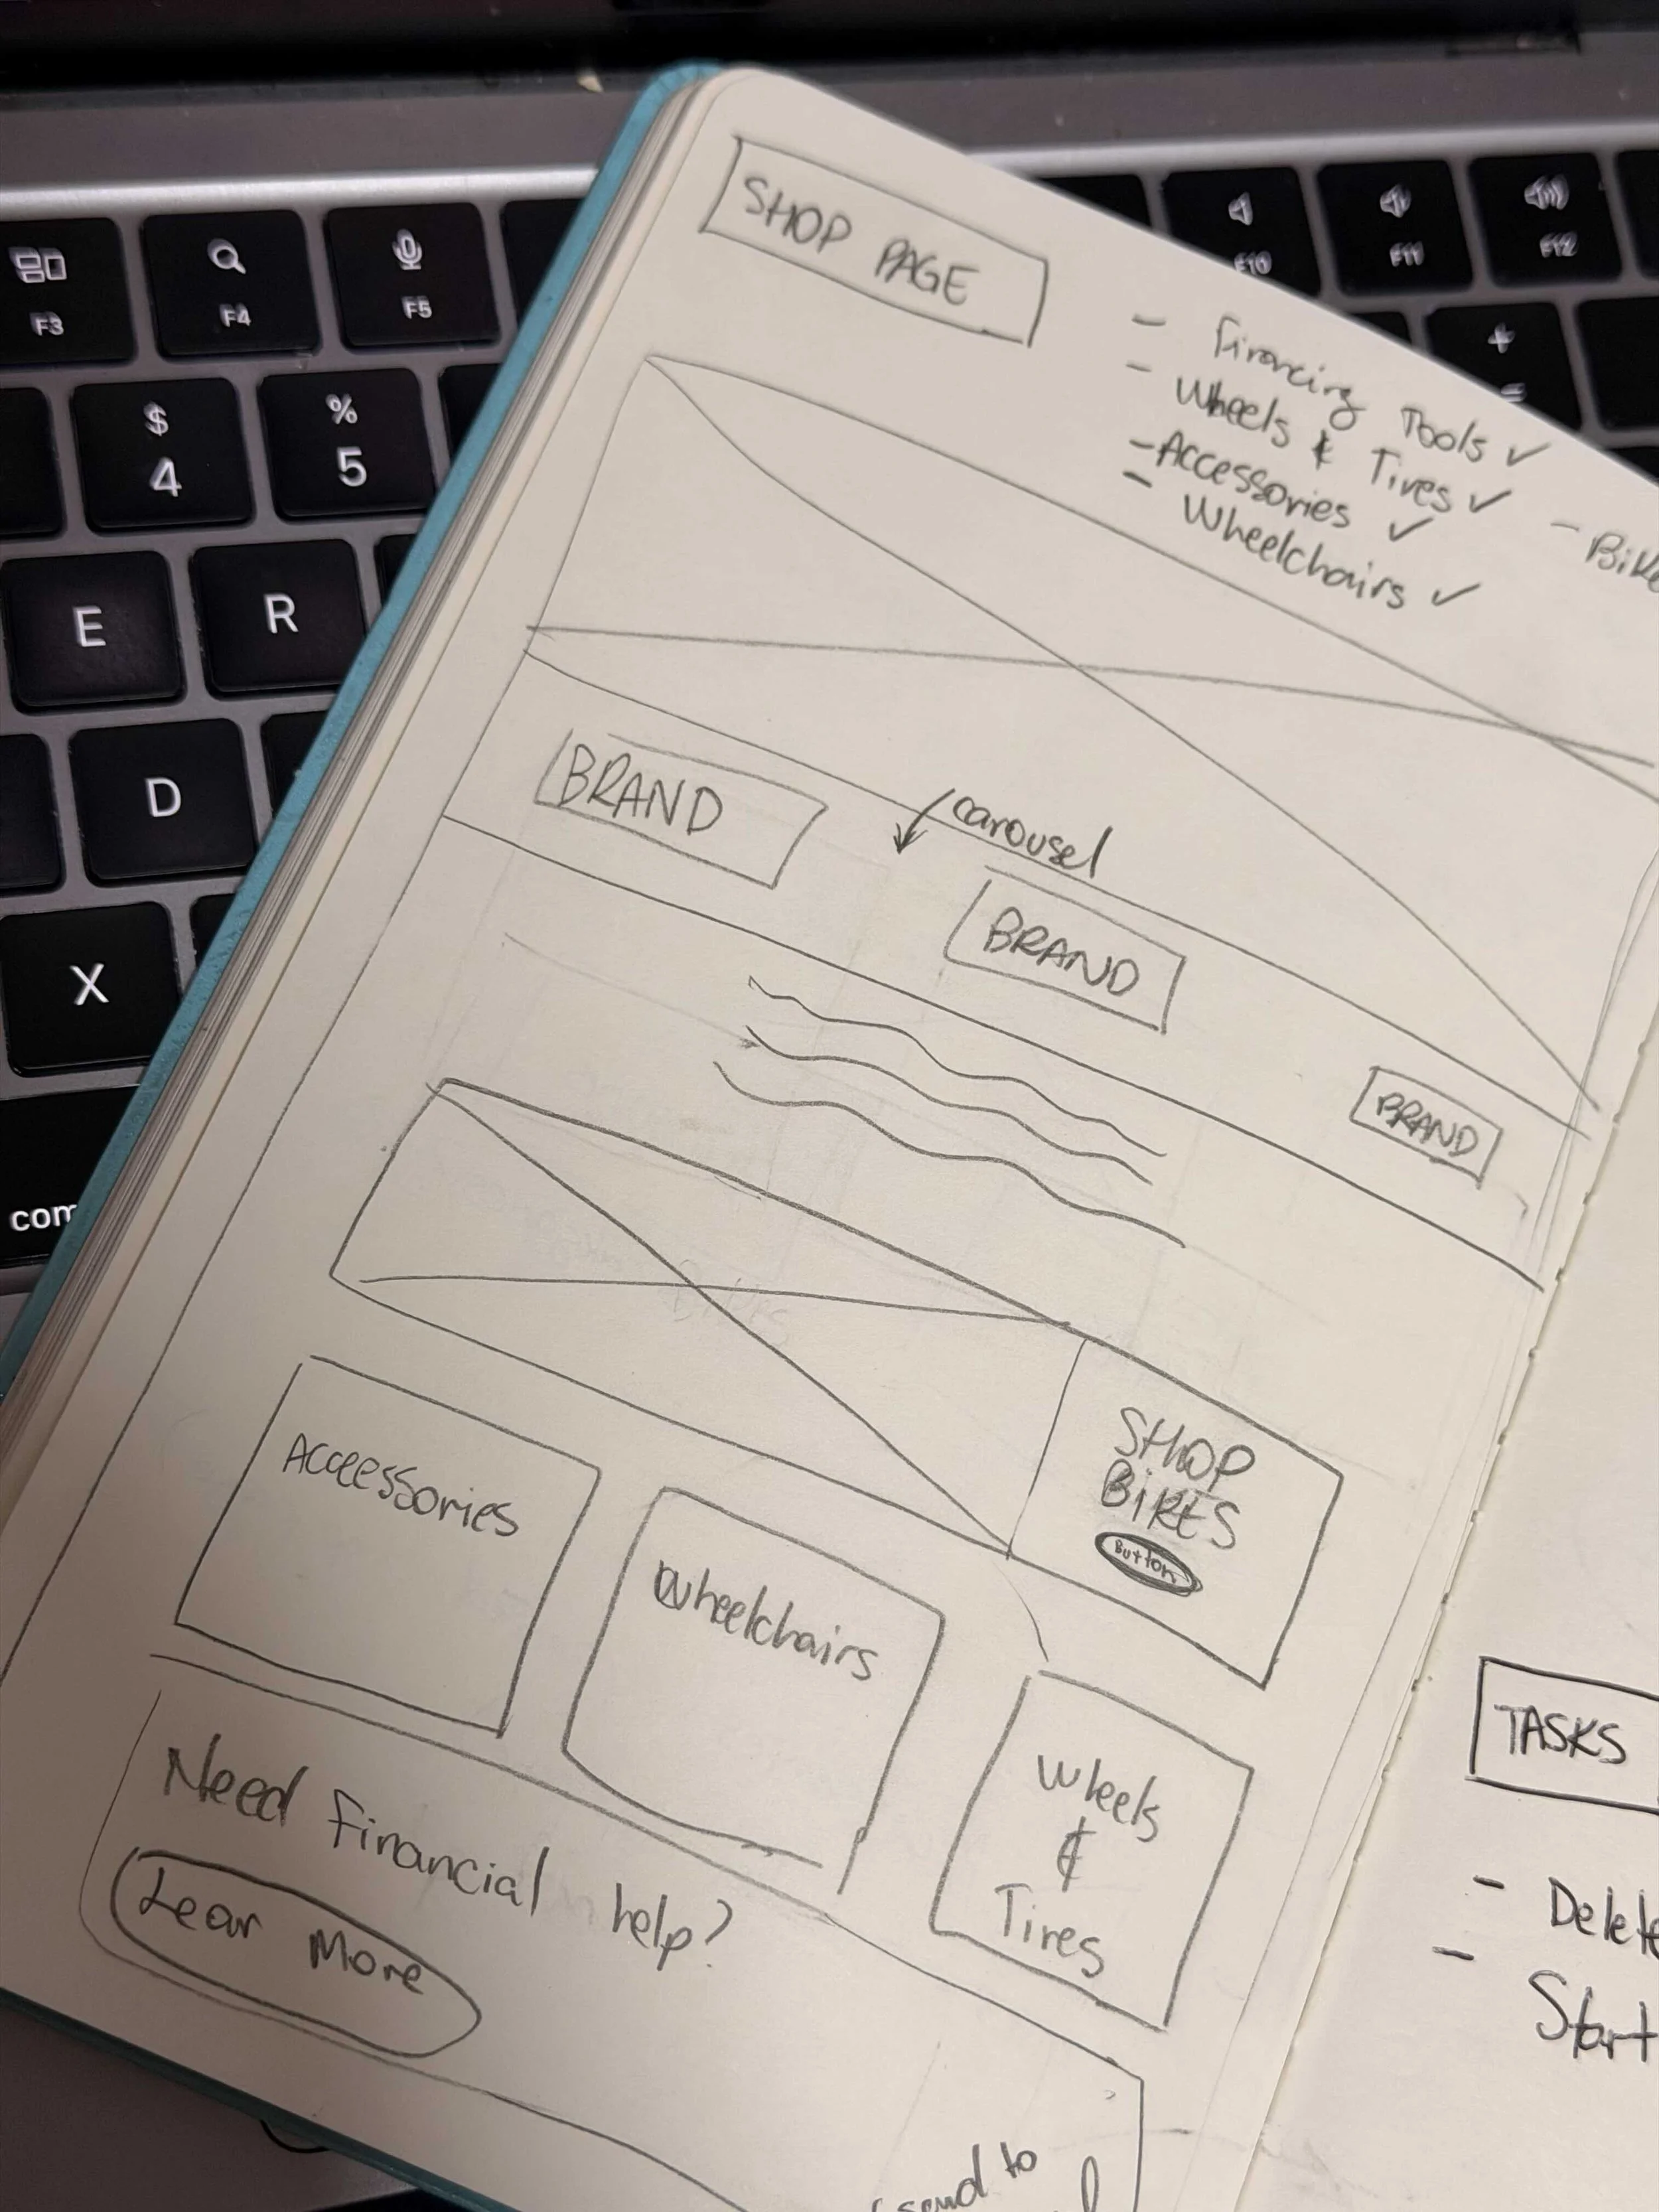 SHOP PAGE
- Financing Tools ✓
- Wheels & Tires ✓
- Accessories ✓
- Wheelchairs ✓
- Bike
BRAND
carousel
BRAND
BRAND
SHOP
BIKES
Button
Acceessories
Wheelchairs
Wheels
&
Tires
Need Financial help?
Lear More
send to
TASKS
- Delete
- Start
F3
F4
F5
F10
F11
F12
$
4
%
5
+
=
E
R
D
X
com